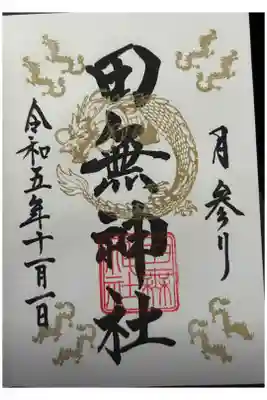 月参り
田無神社
令和五年十一月一日